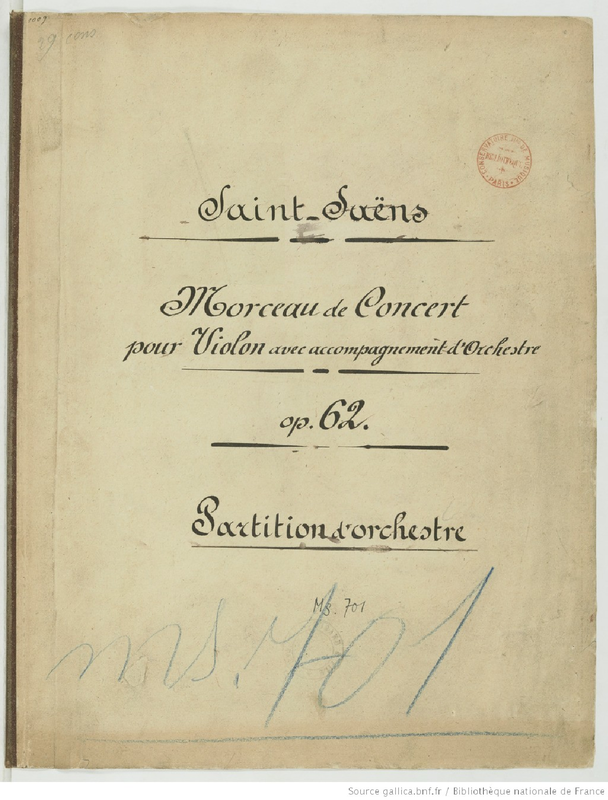 1009
29 cons
CONSERVATOIRE DE MUSIQUE
PARIS
Saint-Saëns
Morceau de Concert
pour Violon avec accompagnement d'Orchestre
op. 62.
Partition d'orchestre
Ms. 701
ms. 701
Source gallica.bnf.fr / Bibliothèque nationale de France